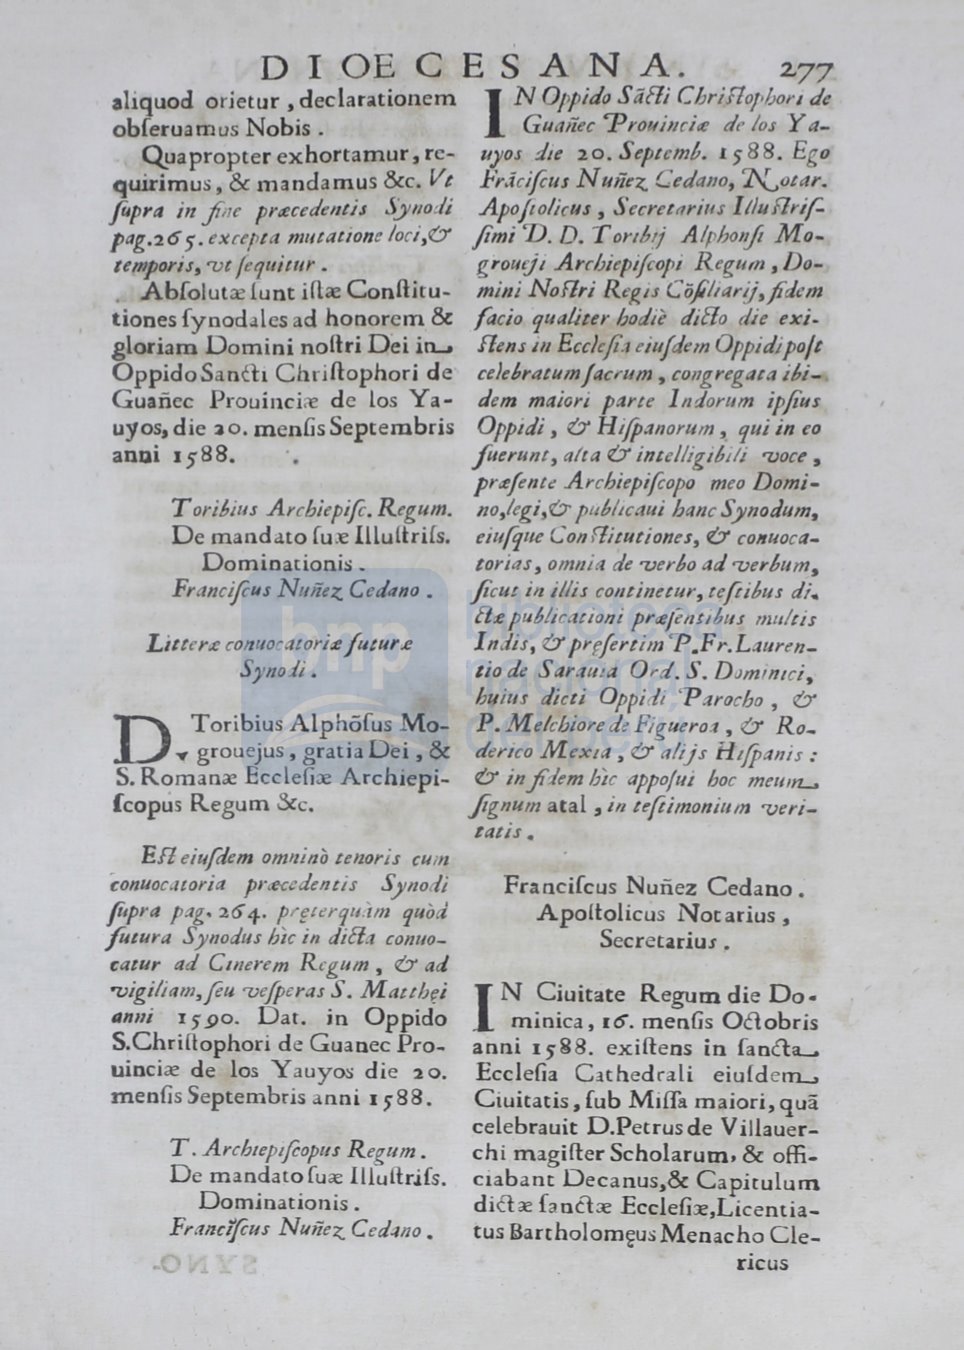 DIOECESANA. 277
aliquod orietur, declarationem
obſeruamus Nobis.
Quapropter exhortamur, re-
quirimus, & mandamus &c. Vt
ſupra in fine præcedentis Synodi
pag. 265. excepta mutatione loci, &
temporis, vt ſequitur.
Abſolutæ ſunt iſtæ Conſtitu-
tiones ſynodales ad honorem &
gloriam Domini noſtri Dei in
Oppido Sancti Chriſtophori de
Guañec Prouinciæ de los Ya-
uyos, die 20. menſis Septembris
anni 1588.
Toribius Archiepiſc. Regum.
De mandato ſuæ Illuſtriſs.
Dominationis.
Franciſcus Nuñez Cedano.
Litteræ conuocatoriæ futuræ
Synodi.
D. Toribius Alphõſus Mo-
grouejus, gratia Dei, &
S. Romanæ Eccleſiæ Archiepi-
ſcopus Regum &c.
Eſt eiuſdem omninò tenoris cum
conuocatoria præcedentis Synodi
ſupra pag. 264. pręterquàm quòd
futura Synodus hìc in dicta conuo-
catur ad Cinerem Regum, & ad
vigiliam, ſeu veſperas S. Matthęi
anni 1590. Dat. in Oppido
S. Chriſtophori de Guanec Pro-
uinciæ de los Yauyos die 20.
menſis Septembris anni 1588.
T. Archiepiſcopus Regum.
De mandato ſuæ Illuſtriſs.
Dominationis.
Franciſcus Nuñez Cedano.
IN Oppido Sãcti Chriſtophori de
Guañec Prouinciæ de los Ya-
uyos die 20. Septemb. 1588. Ego
Frãciſcus Nuñez Cedano, Notar.
Apoſtolicus, Secretarius Illuſtriſ-
ſimi D. D. Toribij Alphonſi Mo-
groueji Archiepiſcopi Regum, Do-
mini Noſtri Regis Cõſiliarij, fidem
facio qualiter hodiè dicto die exi-
ſtens in Eccleſia eiuſdem Oppidi poſt
celebratum ſacrum, congregata ibi-
dem maiori parte Indorum ipſius
Oppidi, & Hiſpanorum, qui in eo
fuerunt, alta & intelligibili voce,
præſente Archiepiſcopo meo Domi-
no, legi, & publicaui hanc Synodum,
eiuſque Conſtitutiones, & conuoca-
torias, omnia de verbo ad verbum,
ſicut in illis continetur, teſtibus di-
ctæ publicationi præſentibus multis
Indis, & pręſertim P. Fr. Lauren-
tio de Sarauia Ord. S. Dominici,
huius dicti Oppidi Parocho, &
P. Melchiore de Figueroa, & Ro-
derico Mexia, & alijs Hiſpanis:
& in fidem hìc appoſui hoc meum
ſignum atal, in teſtimonium veri-
tatis.
Franciſcus Nuñez Cedano.
Apoſtolicus Notarius,
Secretarius.
IN Ciuitate Regum die Do-
minica, 16. menſis Octobris
anni 1588. exiſtens in ſancta
Eccleſia Cathedrali eiuſdem
Ciuitatis, ſub Miſſa maiori, quã
celebrauit D. Petrus de Villauer-
chi magiſter Scholarum, & offi-
ciabant Decanus, & Capitulum
dictæ ſanctæ Eccleſiæ, Licentia-
tus Bartholomęus Menacho Cle-
ricus
bnp
biblioteca
nacional
del perú